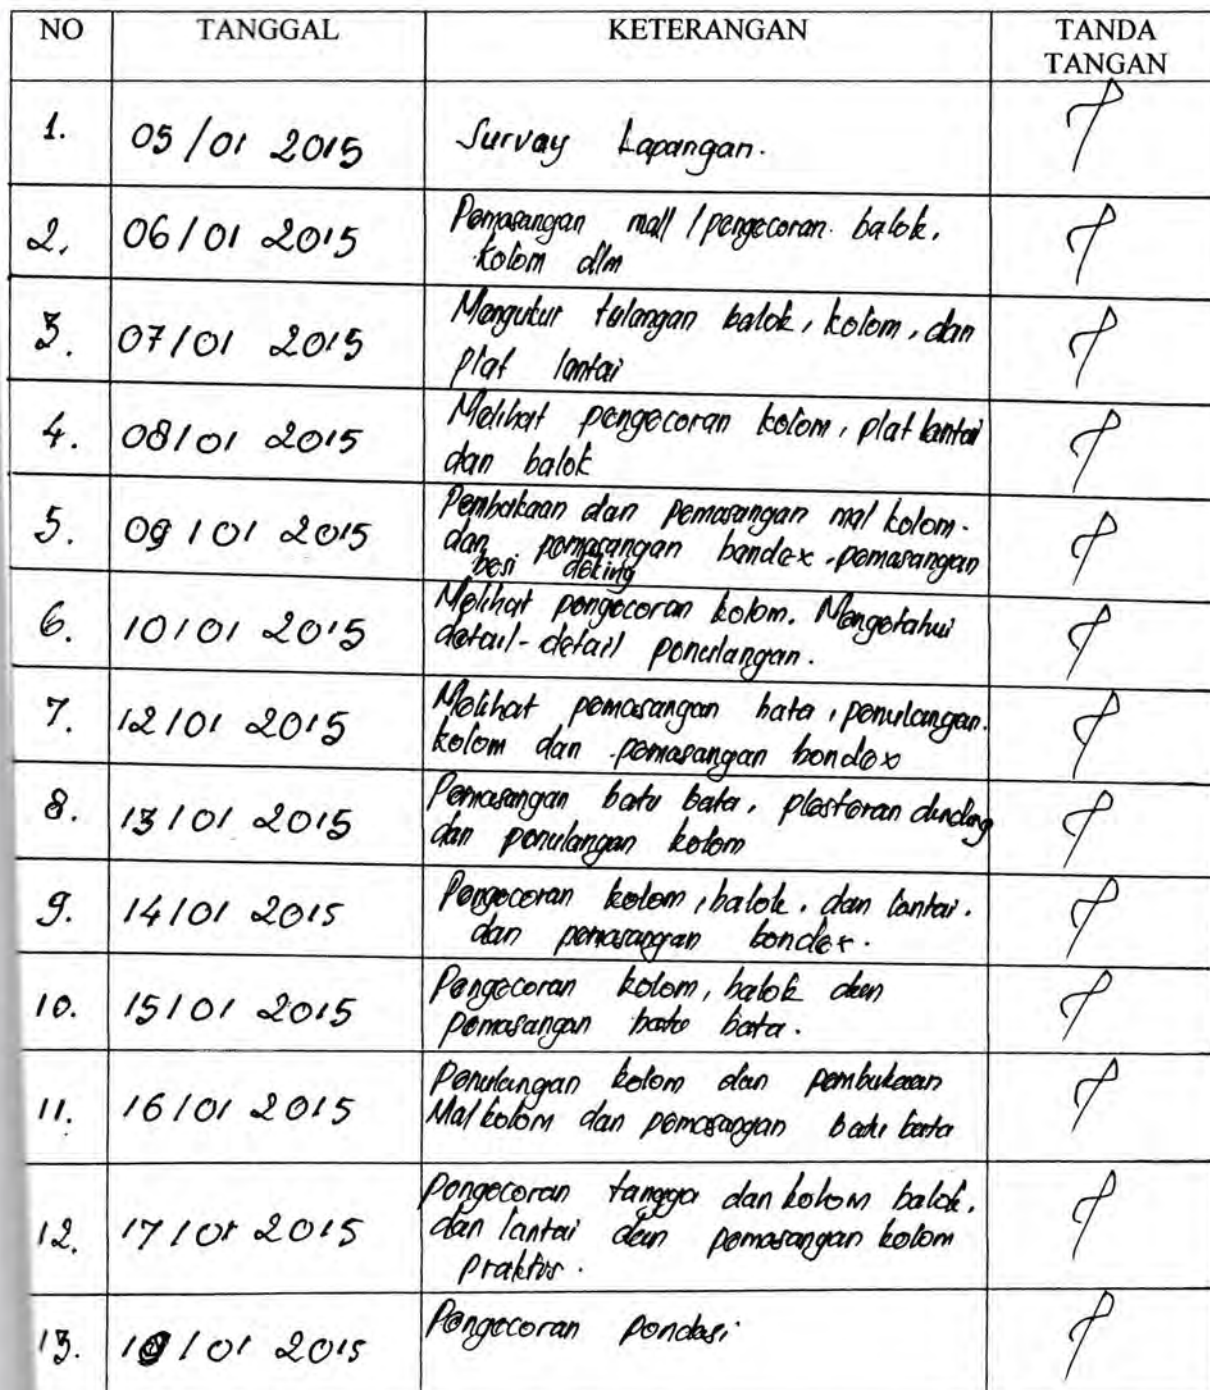 NO TANGGAL KETERANGAN TANDA
TANGAN
1. 05/01 2015 Survay Lapangan.
2. 06/01 2015 Pemasangan mall / pengecoran balok,
kolom dlm
3. 07/01 2015 Mengukur tulangan balok, kolom, dan
plat lantai
4. 08/01 2015 Melihat pengecoran kolom, plat lantai
dan balok
5. 09/01 2015 Pembukaan dan pemasangan mal kolom.
dan pemasangan bandex, pemasangan
besi deking
6. 10/01 2015 Melihat pengecoran kolom. Mengetahui
detail-detail penulangan.
7. 12/01 2015 Melihat pemasangan bata, penulangan.
kolom dan pemasangan bondex
8. 13/01 2015 Pemasangan batu bata, plesteran dinding
dan penulangan kolom
9. 14/01 2015 Pengecoran kolom, balok, dan lantai.
dan pemasangan bondex.
10. 15/01 2015 Pengecoran kolom, balok dan
pemasangan batu bata.
11. 16/01 2015 Penulangan kolom dan pembukaan
Mal kolom dan pemasangan batu bata
12. 17/01 2015 Pengecoran tangga dan kolom balok,
dan lantai dan pemasangan kolom
praktis.
13. /01 2015 Pengecoran pondasi